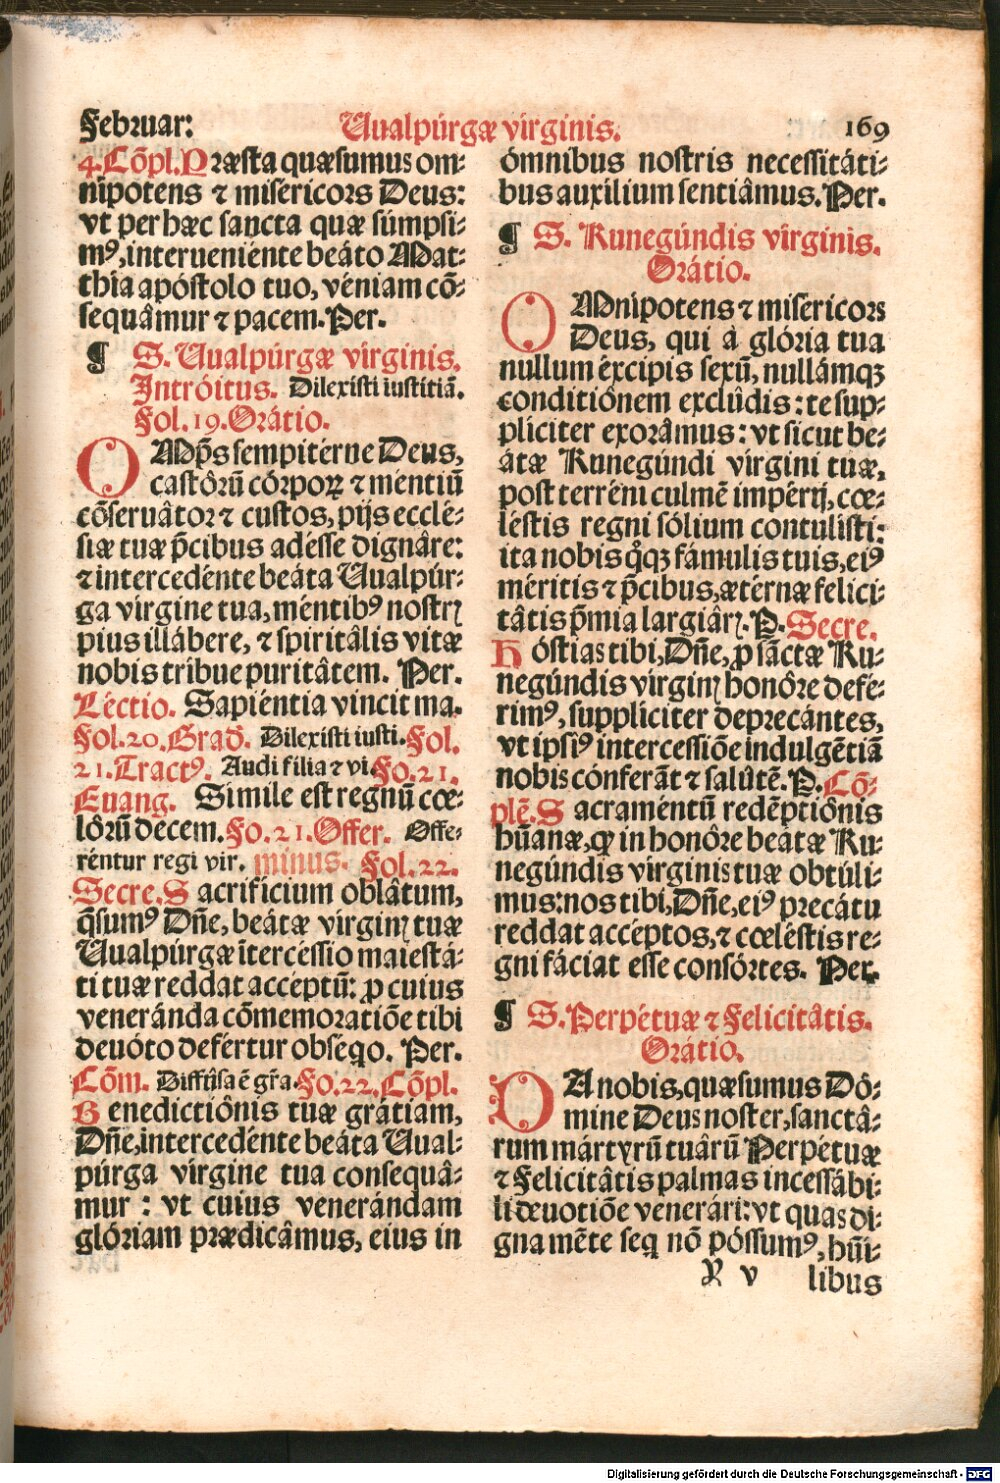 Februar:
Uualpúrgæ virginis.
169
4.Cõpl. Præsta quæsumus om-
nîpotens ⁊ misericors Deus:
vt per hæc sancta quæ súmpsi-
mꝰ, interueniénte beáto Mat-
thîa apóstolo tuo, véniam cõ-
sequâmur ⁊ pacem. Per.
¶ S. Uualpúrgæ virginis.
Intróitus. Dilexísti iustítiã.
Fol. 19. Orátio.
OMp̃s sempitérne Deus,
castôrũ córporꝝ ⁊ méntiũ
cõseruâtor ⁊ custos, pijs ecclé-
siæ tuæ p̃cibus adésse dignâre:
⁊ intercedénte beáta Uualpúr-
ga vírgine tua, méntibꝰ nostrꝭ
pius illábere, ⁊ spiritâlis vitæ
nobis tríbue puritâtem. Per.
Léctio. Sapiéntia vincit ma.
Fol. 20. Grad̃. Dilexísti iusti. Fol.
21. Tractꝰ. Audi fília ⁊ vi. Fo. 21.
Euang. Símile est regnũ cœ-
lôrũ decem. Fo. 21. Offer. Offe-
réntur regi vir. minus. Fol. 22.
Secre. Sacrifícium oblâtum,
q̃sumꝰ Dñe, beátæ vírginꝭ tuæ
Uualpúrgæ ĩtercéssio maiestá-
ti tuæ reddat accéptũ: ꝓ cuius
veneránda cõmemoratiõe tibi
deuóto deférturobséqo. Per.
Cõm. Diffũsa ẽ gr̃a. Fo. 22. Cõpl.
Benedictiônis tuæ grátiam,
Dñe, intercedénte beáta Uual-
púrga vírgine tua consequâ-
mur : vt cuius venerándam
glóriam prædicâmus, eius in
ómnibus nostris necessitáti-
bus auxílium sentiâmus. Per.
¶ S. Kunegúndis vírginis.
Orátio.
OMnîpotens ⁊ miséricors
Deus, qui à glória tua
nullum éxcipis sexũ, nullámqꝫ
conditiônem exclûdis: te sup-
plíciter exorâmus: vt sicut be-
átæ Kunegúndi vírgini tuæ,
post terréni culmẽ impérij, cœ-
léstis regni sólium contulísti:
ita nobis q̊qꝫ fámulis tuis, eiꝰ
méritis ⁊ p̃cibus, ætérnæ felici-
tâtis p̃mia largiârꝭ. P. Secre.
Hóstias tibi, Dñe, ꝓ sãctæ Ku-
negúndis vírginꝭ honôre defe-
rimꝰ, supplíciter deprecántes,
vt ipsiꝰ intercessiõe indulgẽtiã
nobis cónferãt ⁊ salûtẽ. P. Cõ-
plẽ. Sacraméntũ redẽptiônis
hũanæ, qꝫ in honôre beátæ Ku-
negúndis vírginis tuæ obtúli-
mus: nos tibi, Dñe, eiꝰ precátu
reddat accéptos, ⁊ cœléstis re-
gni fáciat esse consórtes. Per.
¶ S. Perpétuæ ⁊ Felicitâtis.
Orátio.
DA nobis, quæsumus Dó-
mine Deus noster, sanctâ-
rum mártyrũ tuârũ Perpétuæ
⁊ Felicitâtis palmas incessábi-
li deuotiõe venerári: vt quas di-
gna mẽte seq nõ póssumꝰ, hũi-
Y v
libus
Digitalisierung gefördert durch die Deutsche Forschungsgemeinschaft - DFG